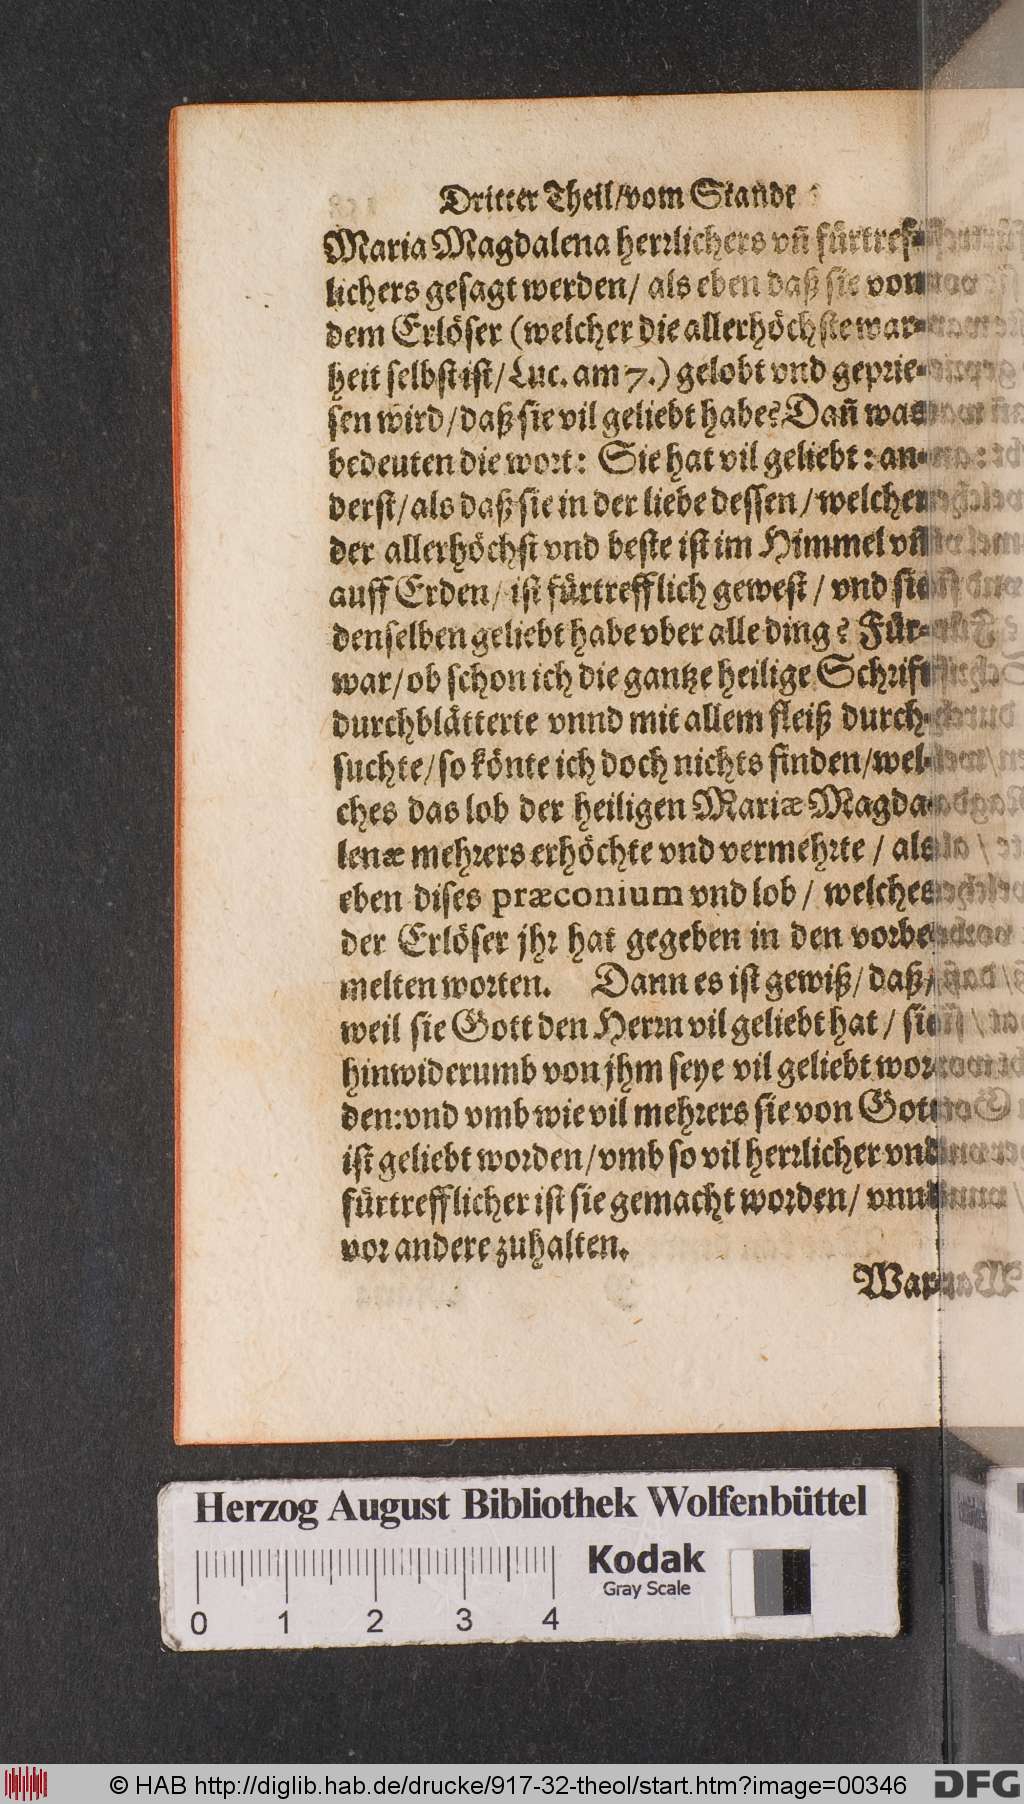 Dritter Theil/vom Stande
Maria Magdalena herrlichers vñ fürtref-
lichers gesagt werden/ als eben daß sie von
dem Erlöser (welcher die allerhöchste war-
heit selbst ist/ Luc. am 7.) gelobt vnd geprie-
sen wird/daß sie vil geliebt habe? Dañ was
bedeuten die wort: Sie hat vil geliebt: an-
derst/als daß sie in der liebe dessen/welcher
der allerhöchst vnd beste ist im Himmel vñ
auff Erden/ ist fürtrefflich gewest/ vnd sie
denselben geliebt habe vber alle ding? Für-
war/ob schon ich die gantze heilige Schrift
durchblätterte vnnd mit allem fleiß durch-
suchte/so könte ich doch nichts finden/wel-
ches das lob der heiligen Mariæ Magda-
lenæ mehrers erhöchte vnd vermehrte/ als
eben dises præconium vnd lob/ welches
der Erlöser jhr hat gegeben in den vorbe-
melten worten. Dann es ist gewiß/ daß/
weil sie Gott den Herrn vil geliebt hat/ sie
hinwiderumb von jhm seye vil geliebt wor-
den:vnd vmb wie vil mehrers sie von Gott
ist geliebt worden/vmb so vil herrlicher vnd
fürtrefflicher ist sie gemacht worden/ vnnd
vor andere zuhalten.
Herzog August Bibliothek Wolfenbüttel
Kodak
Gray Scale
0 1 2 3 4
© HAB http://diglib.hab.de/drucke/917-32-theol/start.htm?image=00346
DFG